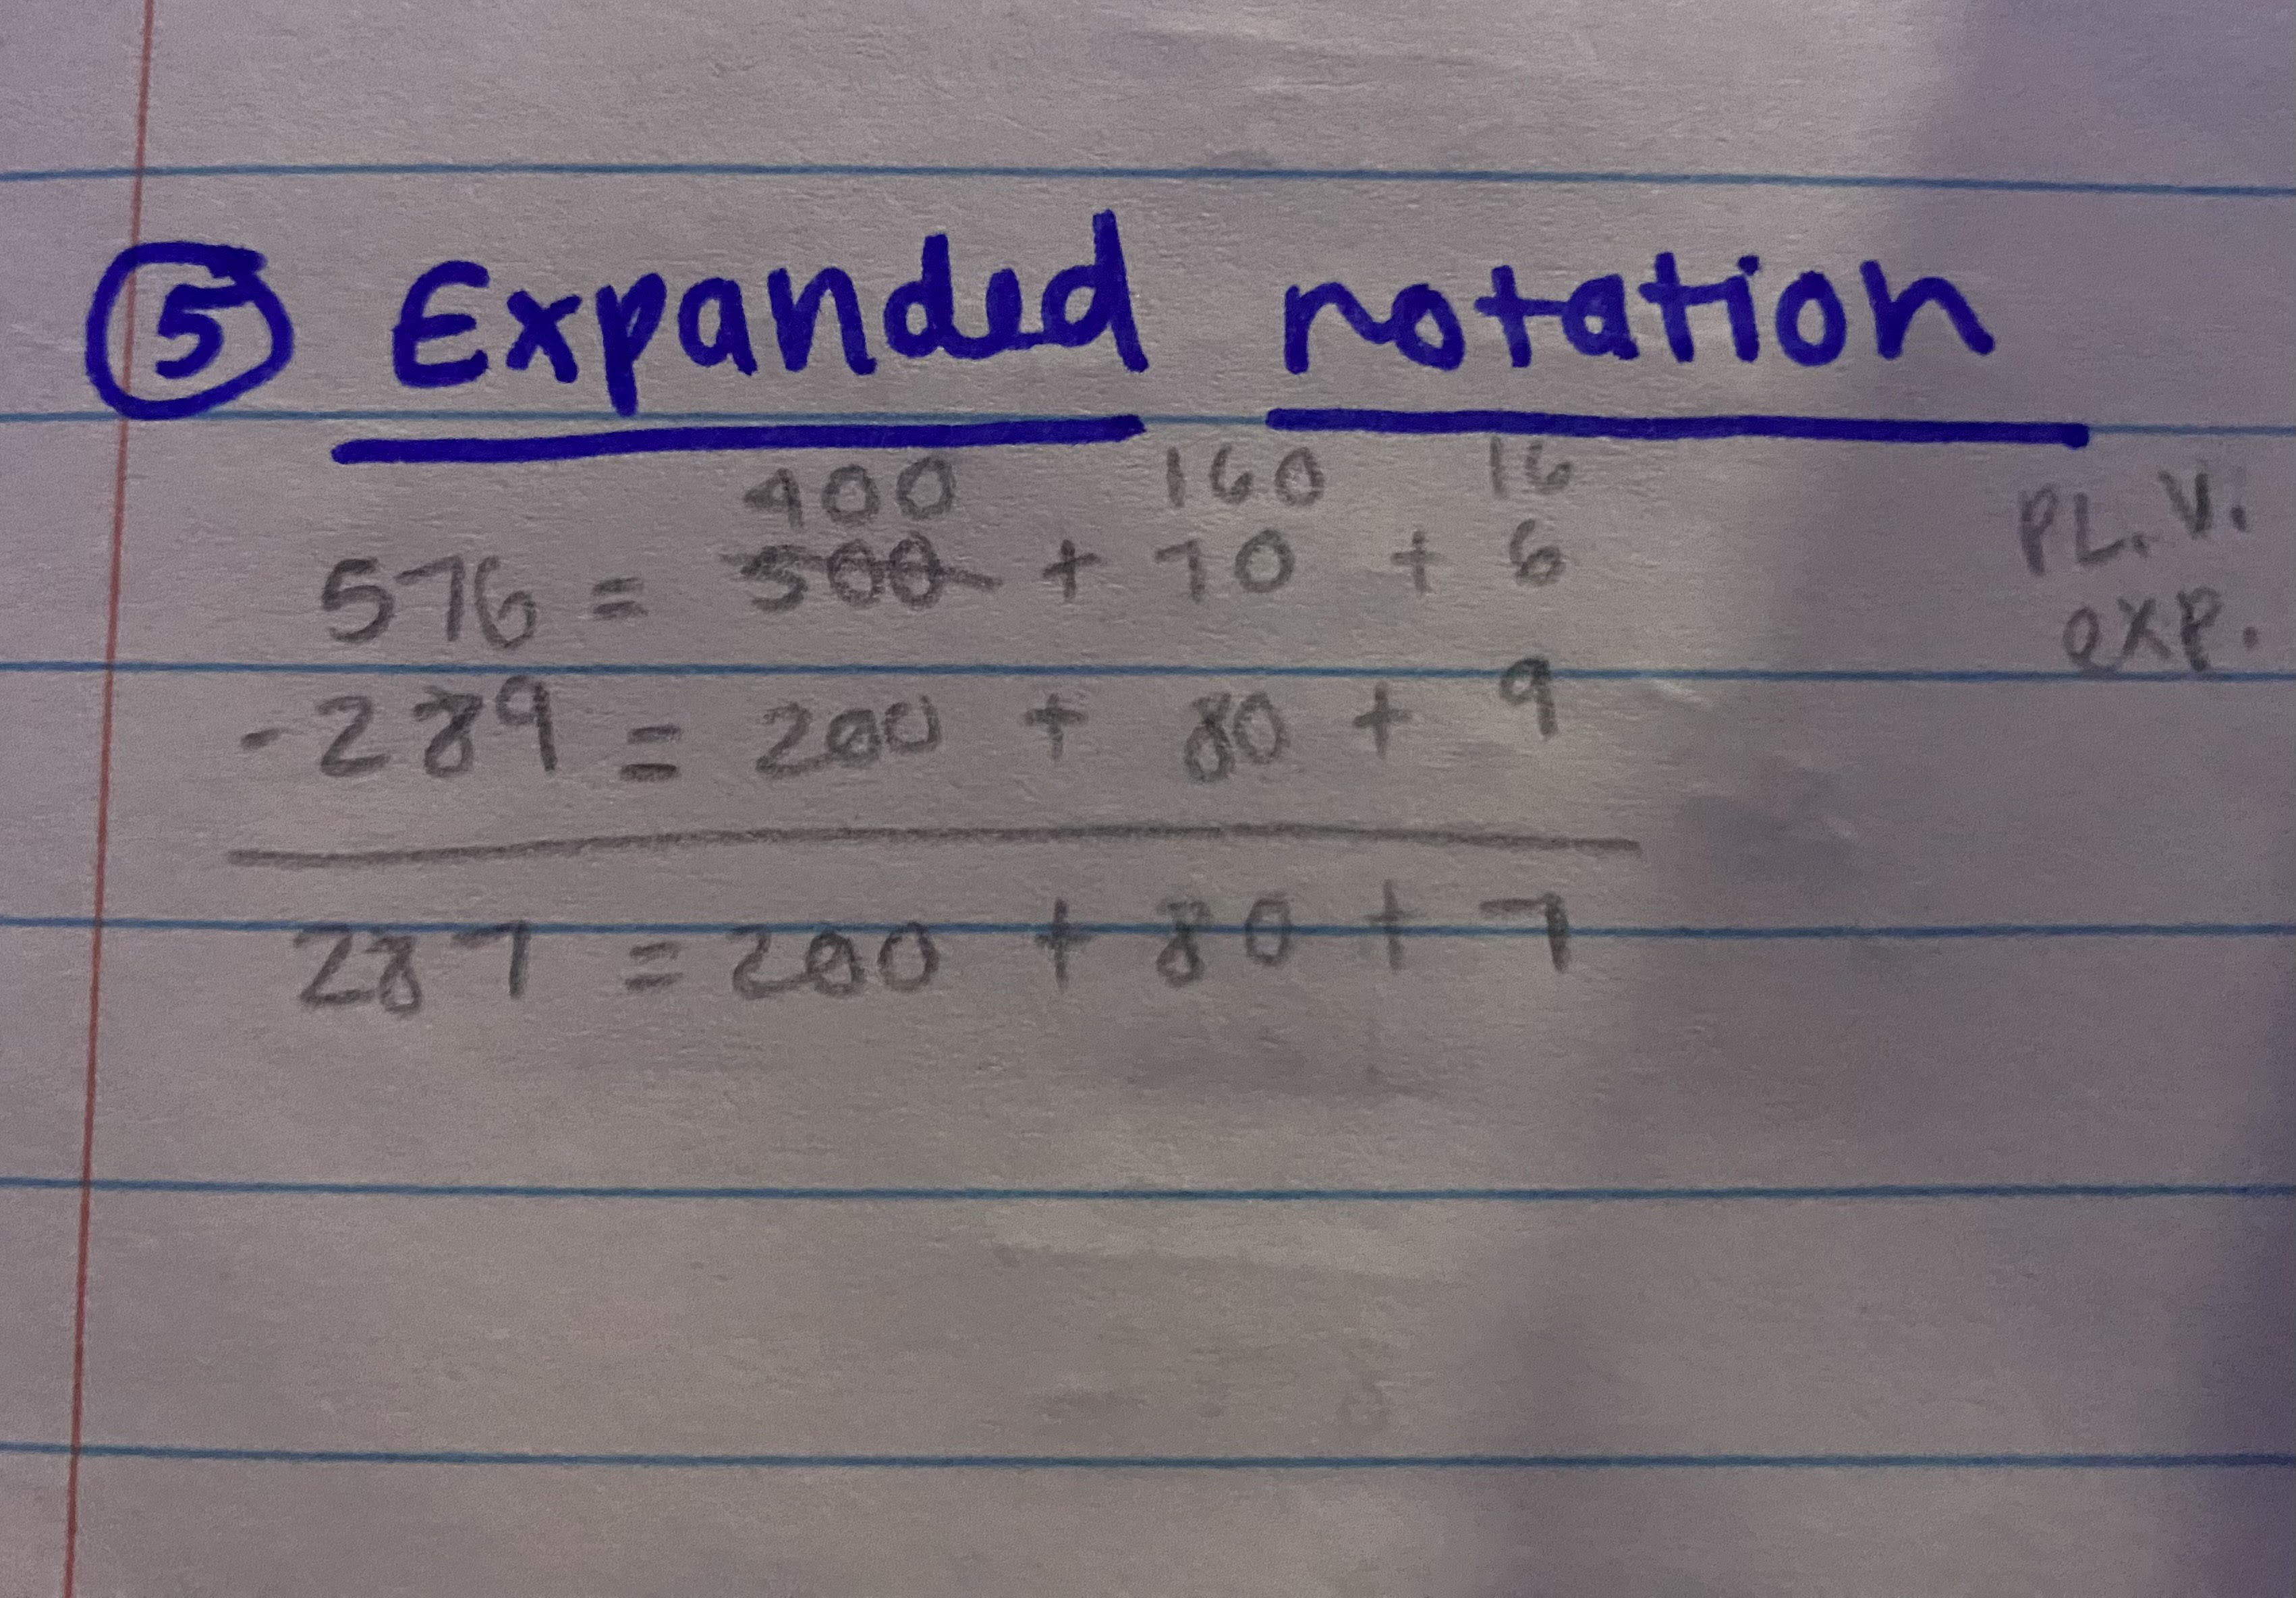 ⑤ Expanded notation
400 160 16
576 = 500 + 70 + 6
PL. V.
exp.
- 289 = 200 + 80 + 9
287 = 200 + 80 + 7